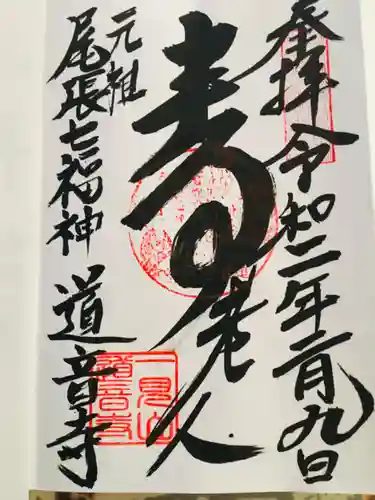 奉拝 令和二年一月九日
寿老人
元祖
尾張七福神 道音寺
一見山
道音寺